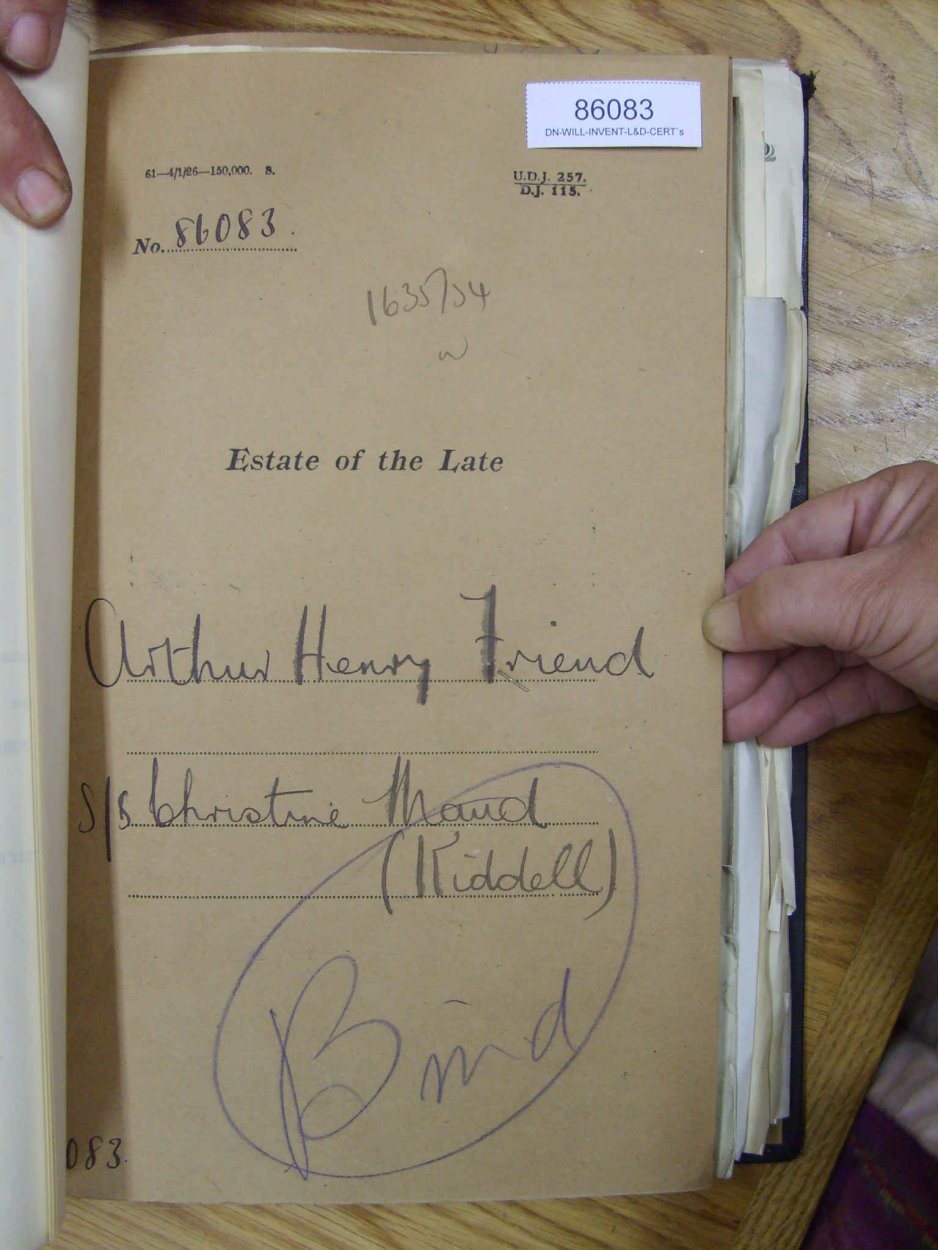 86083
DN-WILL-INVENT-L&D-CERT`s
61—4/1/26—150,000. S.
U.D.J. 257.
D.J. 115.
No. 86083.
1635/54
w
Estate of the Late
Arthur Henry Friend
S/S Christine Maud
(Kiddell)
Bind
083